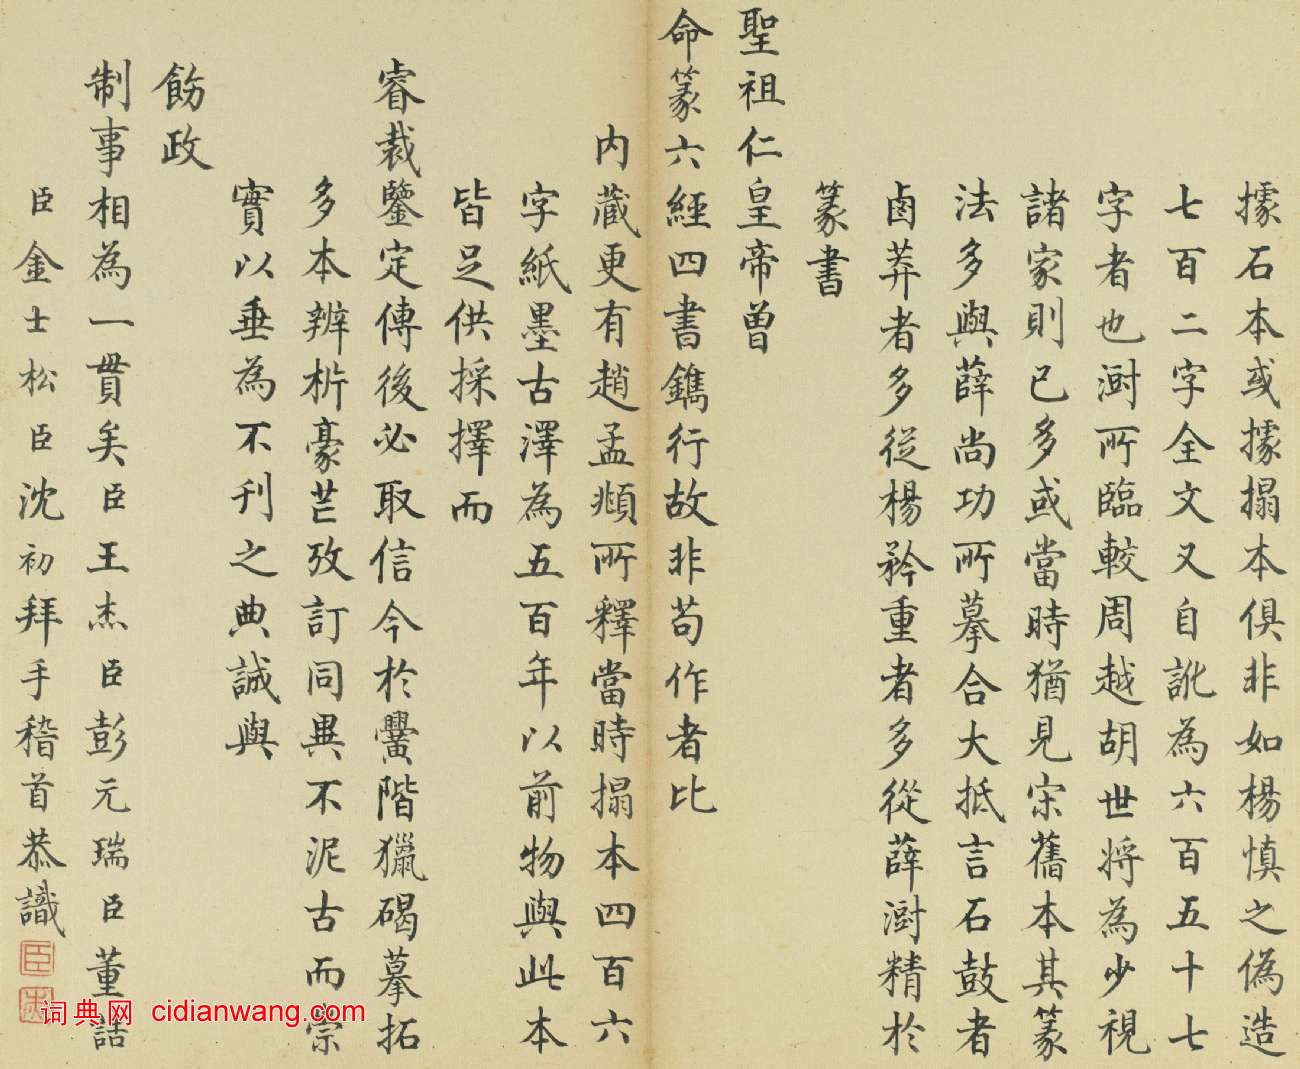 據石本或據搨本俱非如楊慎之偽造
七百二字全文又自訛為六百五十七
字者也澍所臨較周越胡世將為少視
諸家則已多或當時猶見宋舊本其篆
法多與薛尚功所摹合大抵言石鼓者
鹵莽者多從楊矜重者多從薛澍精於
篆書
聖祖仁皇帝曾
命篆六經四書鐫行故非苟作者比
內蔵更有趙孟頫所釋當時搨本四百六
字紙墨古澤為五百年以前物與此本
皆足供採擇而
睿裁鑒定傳後必取信今於黌階獵碣摹拓
多本辨析豪芒攷訂同異不泥古而崇
實以垂為不刊之典誠與
飭政
制事相為一貫矣臣王杰臣彭元瑞臣董誥
臣金士松臣沈初拜手稽首恭識
臣
词典网 cidianwang.com